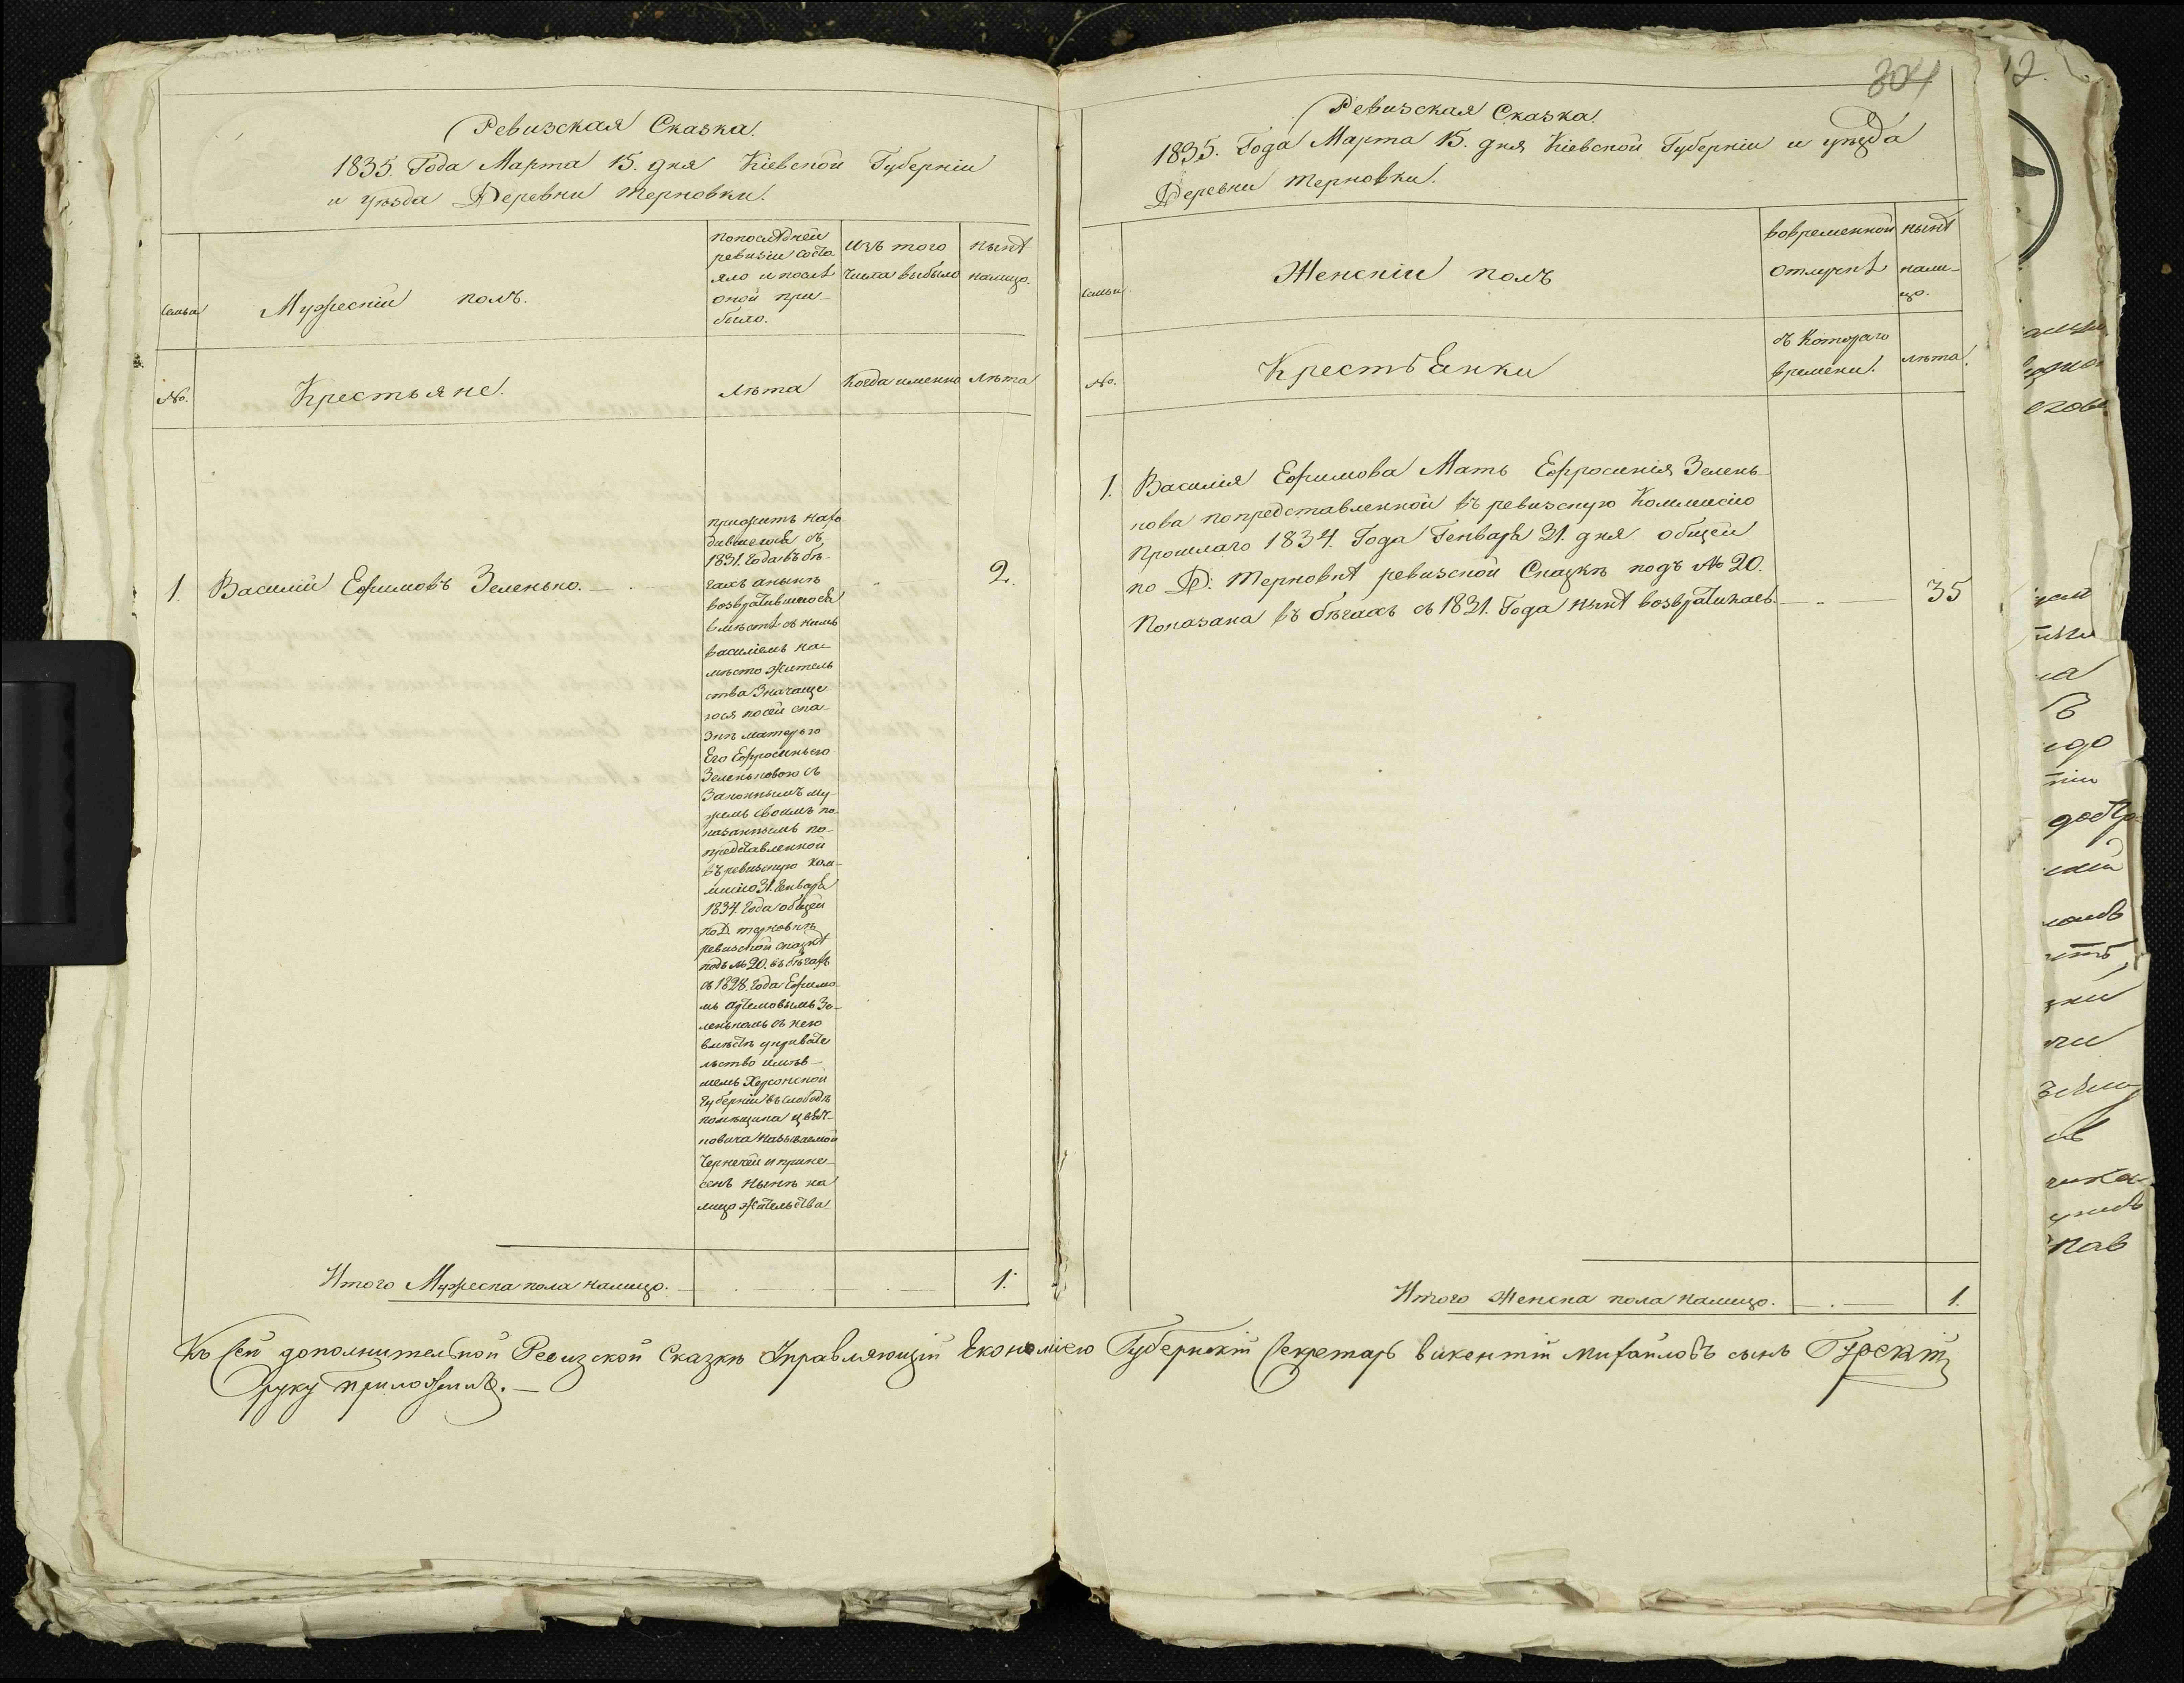 Ревизская Сказка.
1835. Года Марта 15. дня Кіевской Губерніи
и уѣзда Деревни Терновки.
Семьи
Мужескій полъ.
попослѣдней
ревизіи состо
яло и послѣ
оной при-
было.
изъ того
числа выбыло
нынѣ
налицо.
№.
Крестьяне.
лѣта
Когда именно
лѣта
1. Василій Ефимовъ Зеленько. 2.
прижитъ наро
дившегося въ
1831. Года въ бѣ-
гахъ анынѣ
возвратившегося
вмѣстѣ съ нимъ
василіемъ на
мѣсто житель
ства значаще
гося посей ска-
зкѣ матерью
Его Ефросиньею
Зеленьковою съ
законнымъ му-
жемъ своимъ по-
казаннымъ по-
представленной
въ ревизскую ком-
мисію 31. Генваря
1834. Года общей
по Д. терновкѣ
ревизской сказкѣ
подъ № 20. въ бѣгахъ
съ 1828. Года Ефимо-
мъ Артемовымъ Зе-
ленькомъ съ нею
вмѣстѣ укривате
льство имѣв-
шемъ Херсонской
Губерніи въ слободѣ
помѣщика
новича называемой
Чернечей и
нынѣ на
лицо жительства
Итого Мужеска пола налицо. 1.
304
Ревизская Сказка.
1835. Года Марта 15. дня Кіевской Губерніи и уѣзда
Деревни Терновки.
Семьи
Женскій полъ
вовременной
отлучкѣ
нынѣ
нали-
цо.
№.
Крестьянки
съ Котораго
времени.
лѣта.
1. Василія Ефимова Мать Ефросинія Зелень-
кова попредставленной въ ревизскую Коммисію
Прошлаго 1834. Года Генваря 31. дня общей
по Д: Терновкѣ ревизской Сказкѣ подъ № 20.
Показана въ бѣгахъ съ 1821. Года нынѣ возвратилась. 35
Итого Женска пола налицо. 1.
Къ сей дополнительной Ревизской Сказкѣ Управляющій Економіею Губернскій Секретарь викентій михайловъ сынъ
руку приложилъ.